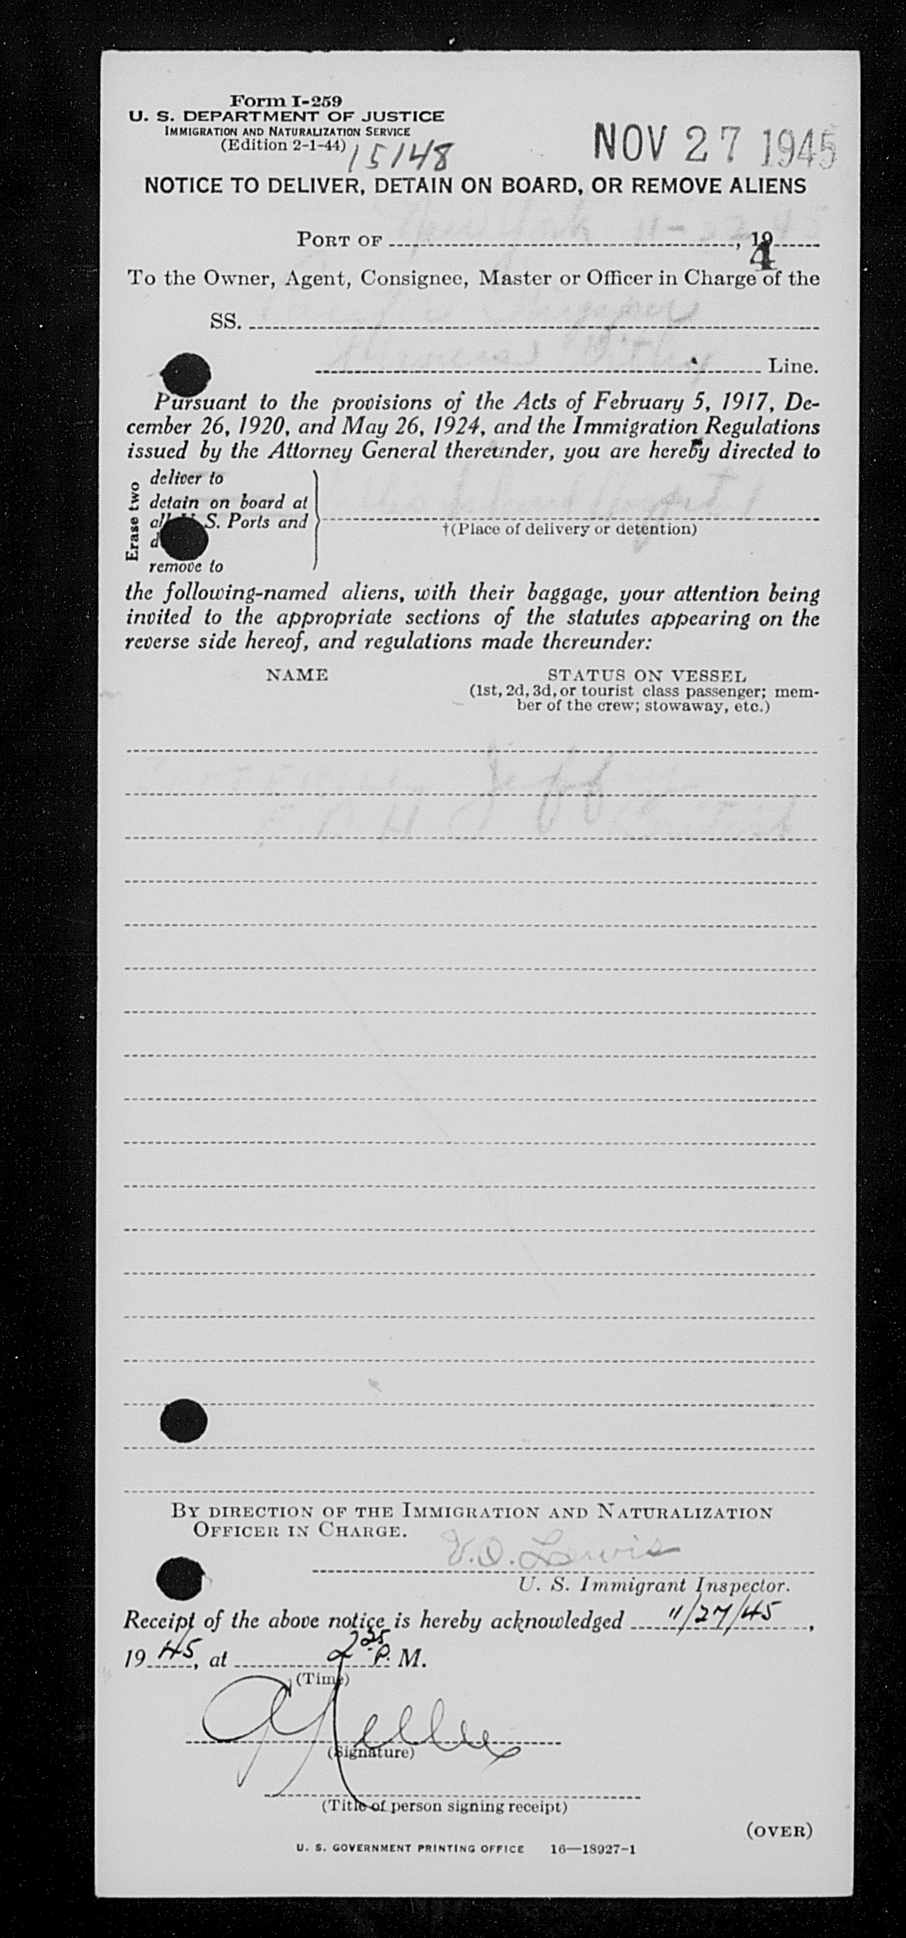 Form I-259
U. S. DEPARTMENT OF JUSTICE
IMMIGRATION AND NATURALIZATION SERVICE
(Edition 2-1-44)
15148
NOV 27 1945
NOTICE TO DELIVER, DETAIN ON BOARD, OR REMOVE ALIENS
PORT OF , 19
4
To the Owner, Agent, Consignee, Master or Officer in Charge of the
SS.
Line.
Pursuant to the provisions of the Acts of February 5, 1917, De-
cember 26, 1920, and May 26, 1924, and the Immigration Regulations
issued by the Attorney General thereunder, you are hereby directed to
Erase two
deliver to
detain on board at
S. Ports and
remove to
†(Place of delivery or detention)
the following-named aliens, with their baggage, your attention being
invited to the appropriate sections of the statutes appearing on the
reverse side hereof, and regulations made thereunder:
NAME
STATUS ON VESSEL
(1st, 2d, 3d, or tourist class passenger; mem-
ber of the crew; stowaway, etc.)
BY DIRECTION OF THE IMMIGRATION AND NATURALIZATION
OFFICER IN CHARGE.
V.D. Lewis
U. S. Immigrant Inspector.
Receipt of the above notice is hereby acknowledged 11/27/45,
19 45, at 2 25 P. M.
(Time)
(Signature)
(Title of person signing receipt)
(OVER)
U. S. GOVERNMENT PRINTING OFFICE 16—18927-1